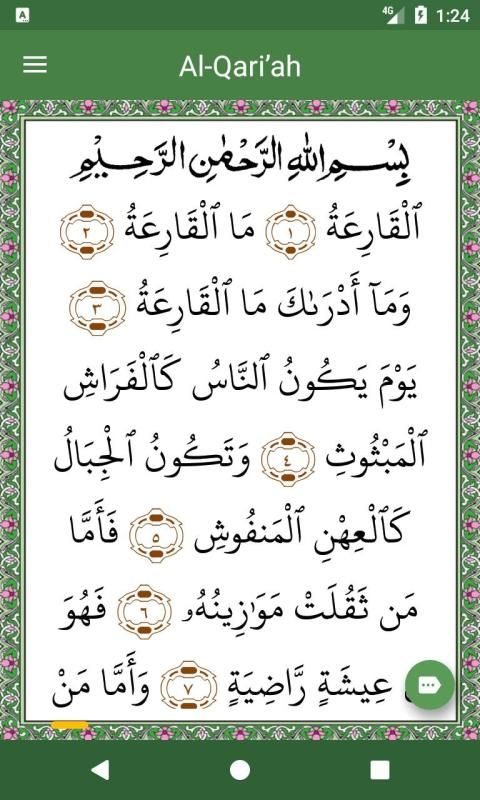 A
4G
1:24
Al-Qari'ah
بِسْمِ اللهِ الرَّحْمٰنِ الرَّحِيْمِ
ٱلْقَارِعَةُ ١ مَا ٱلْقَارِعَةُ ٢
وَمَآ أَدْرَىٰكَ مَا ٱلْقَارِعَةُ ٣
يَوْمَ يَكُونُ ٱلنَّاسُ كَٱلْفَرَاشِ
ٱلْمَبْثُوثِ ٤ وَتَكُونُ ٱلْجِبَالُ
كَٱلْعِهْنِ ٱلْمَنفُوشِ ٥ فَأَمَّا
مَن ثَقُلَتْ مَوَٰزِينُهُۥ ٦ فَهُوَ
عِيشَةٍ رَّاضِيَةٍ ٧ وَأَمَّا مَنْ